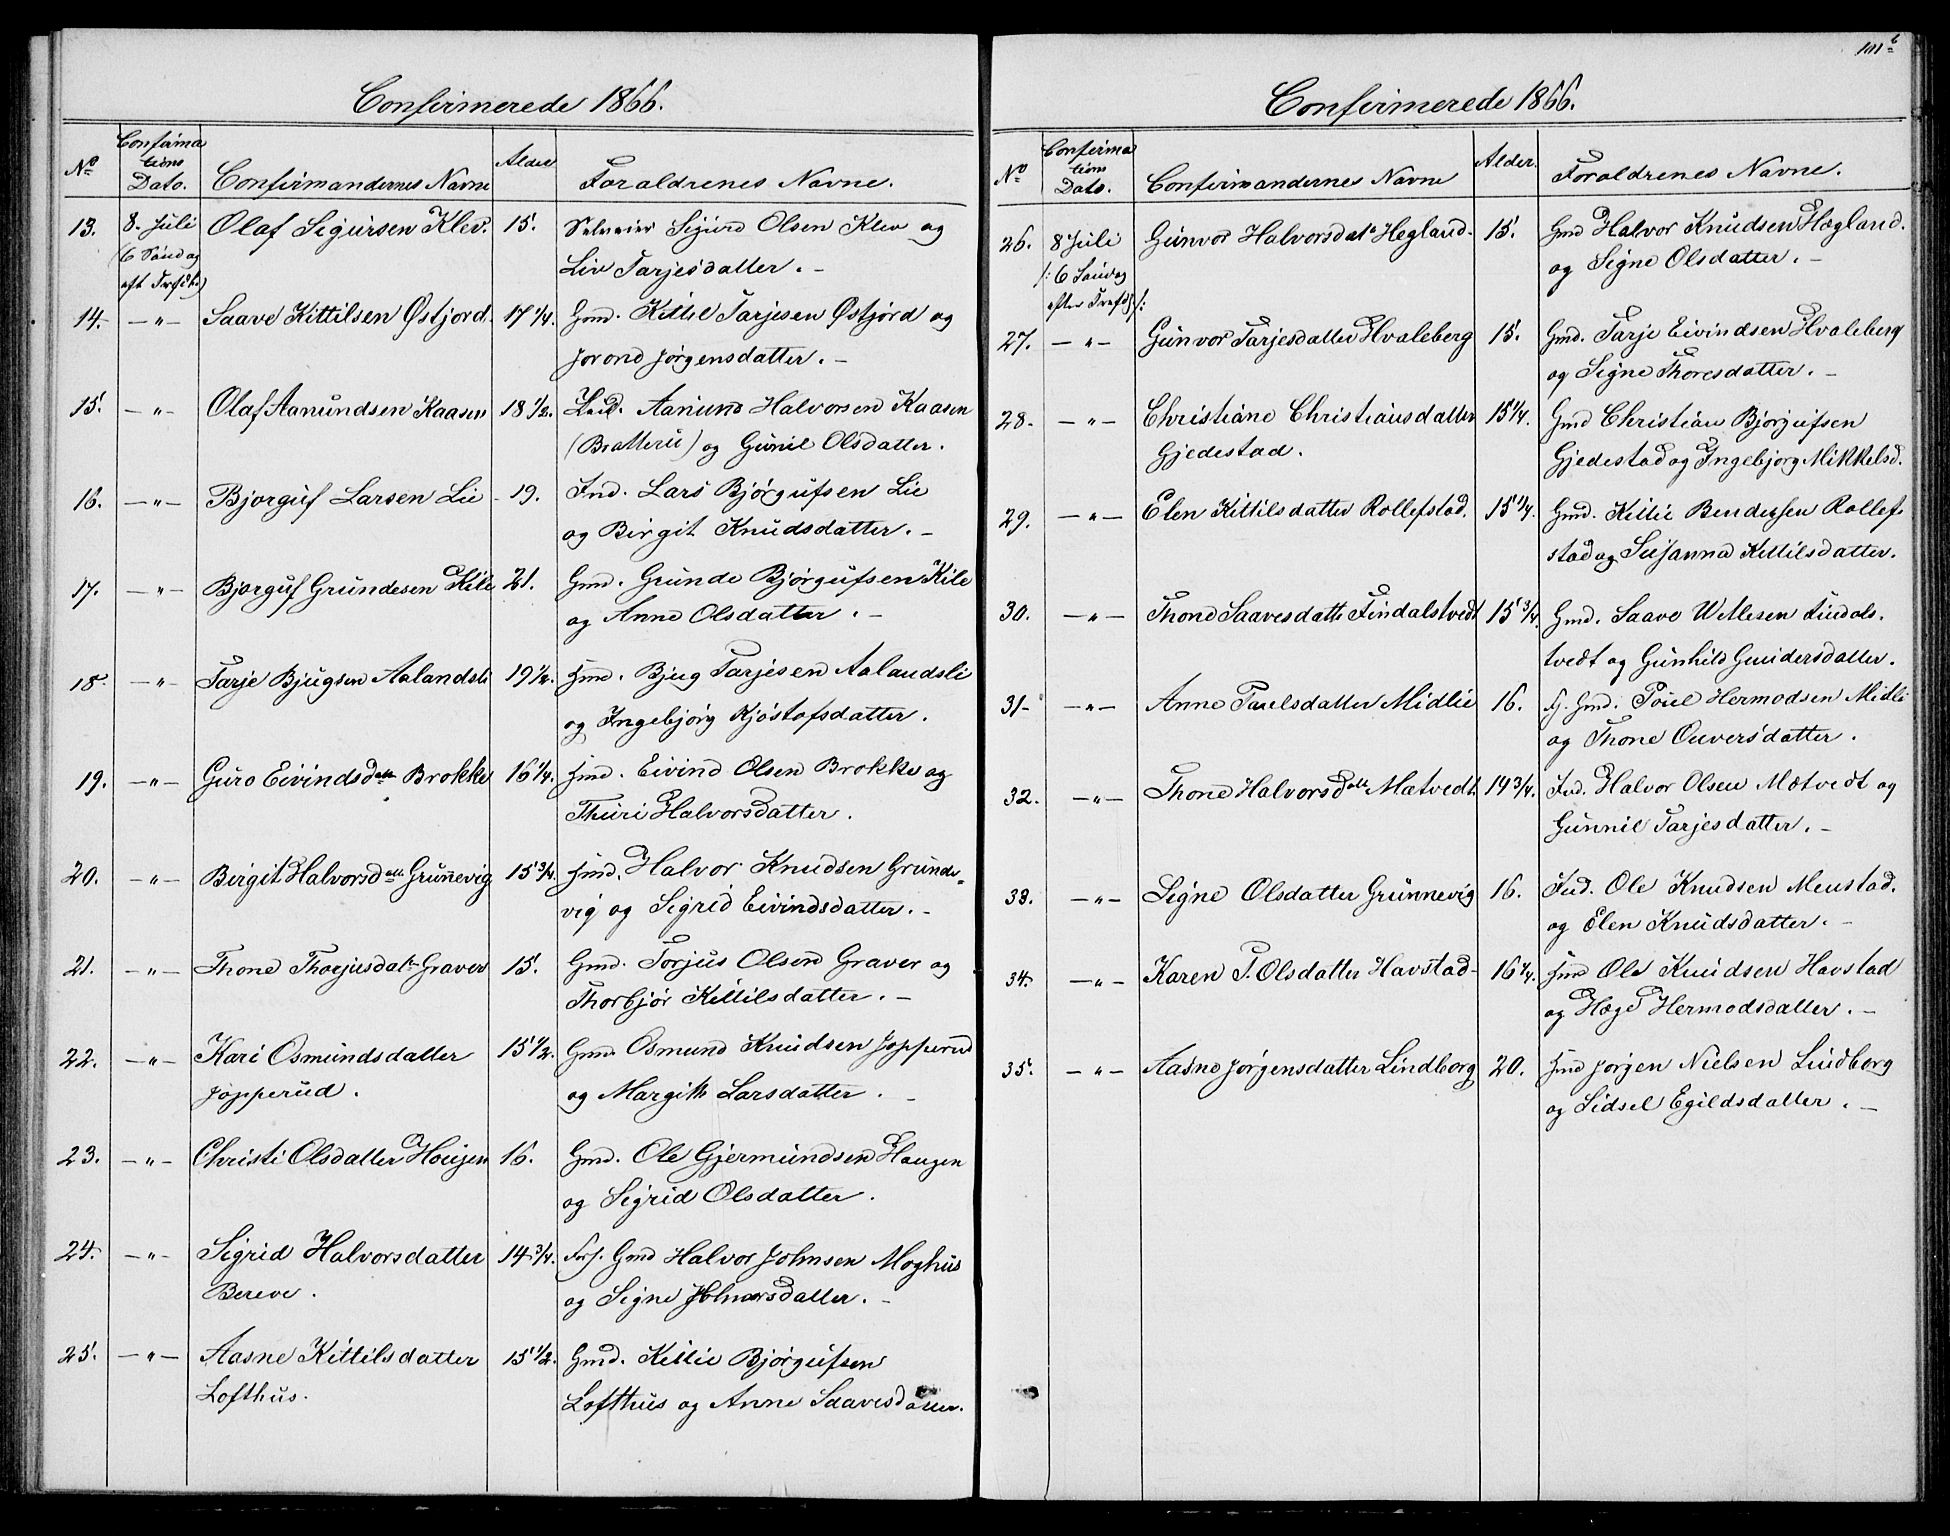 Confirmerede 1866.
No Confirmationsdato. Confirmandernes Navne Alder Foraldrenes Navne.
13. 8. Juli Olaf Sigursen Klev. 15. Selveier Sigurd Olsen Klev og
(6 Søndag eft Trefdh.) Liv Tarjesdatter. -
14. -"- Saave Kittilsen Østjord. 17 1/4. Gmd. Kittil Tarjesen Østjord og
Jorond Jørgensdatter. -
15. -"- Olaf Aamundsen Kaasen 18 1/2. Aamund Halvorsen Kaasen
(Bratteru) og Gunil Olsdatter.
16. -"- Bjorguf Larsen Lie - 19. Ind. Lars Bjørgufsen Lie
og Birgit Knudsdatter. -
17. -"- Bjorguf Grundesen Kile 21. Gmd. Grunde Bjørgufsen Kile
og Anne Olsdatter. -
18. -"- Tarje Bjugsen Aalandsli 19 1/2. Hmd. Bjug Tarjesen Aalandsli
og Ingebjørg Kjøstofsdatter.
19. -"- Guro Eivindsdatt Brokke 16 1/4. Hmd. Eivind Olsen Brokke og
Thuri Halvorsdatter.
20. -"- Birgit Halvorsdatt Grunnevig 15 3/4. Hmd. Halvor Knudsen Grunde-
vig og Sigrid Eivindsdatter. -
21. -"- Thone Thorjusdatr Graver 15. Gmd. Torjus Olsen Graver og
Thorbjør Kittilsdatter. -
22. -"- Kari Osmundsdatter 15 1/2. Gmd. Osmund Knudsen Jopperud
Jopperud. og Margith Larsdatter. -
23. -"- Christi Olsdatter Hougen 16. Gmd. Ole Gjermundsen Haugen
og Sigrid Olsdatter.
24. -"- Sigrid Halvorsdatter 14 3/4. Forh. Gmd Halvor Johnsen Moghus
Bereve. og Signe Holmersdatter. -
25. -"- Aasne Kittilsdatter 15 1/2. Gmd. Kittil Bjørgufsen
Lofthus. Lofthus og Anne Saavesdatter.
101b
Confirmerede 1866.
No Confirmationsdato. Confirmandernes Navne Alder. Foraldrenes Navne.
26. 8 Juli Gunvor Halvorsdatr Hegland. 15. Gmd Halvor Knudsen Hægland.
/: 6 Søndag efter Trefdh :/ og Signe Olsdatter. -
27. -"- Gunvor Tarjesdatter Hvaleberg 15. Gmd. Tarje Eivindsen Hvaleberg
og Signe Thoresdatter. -
28. -"- Christiane Christiansdatter 15 1/4. Gmd Christian Bjorgufsen
Gjedestad. Gjedestad og Ingebjorg Mikkelsd.
29. -"- Elen Kittilsdatter Rollefstad. 15 1/4. Gmd. Kittil Bendixsen Rollef-
stad og Susanna Kittilsdatter.
30. -"- Thone Saavesdattr Findalstvedt 15 3/4. Gmd. Saave Wetlesen Findals-
tvedt og Gunhild Gundersdatter.
31. -"- Anne Paulsdatter Midlie 16. Gmd. Poul Hermodsen Midli
og Thone Ouversdatter.
32. -"- Thone Halvorsdatt Mætvedt. 14 3/4. Ind. Halvor Olsen Mætvedt og
Gunnil Tarjesdatter. -
33. -"- Signe Olsdatter Grunnevig 16. Ind. Ole Knudsen Meustad.
og Elen Knudsdatter. -
34. -"- Karen T. Olsdatter Havstad - 16 1/4. Hmd Ole Knudsen Havstad
og Hæge Hermodsdatter. -
35. -"- Aasne Jørgensdatter Lindborg 20. Hmd Jørgen Nielsen Lindborg
og Sidsel Egildsdatter. -